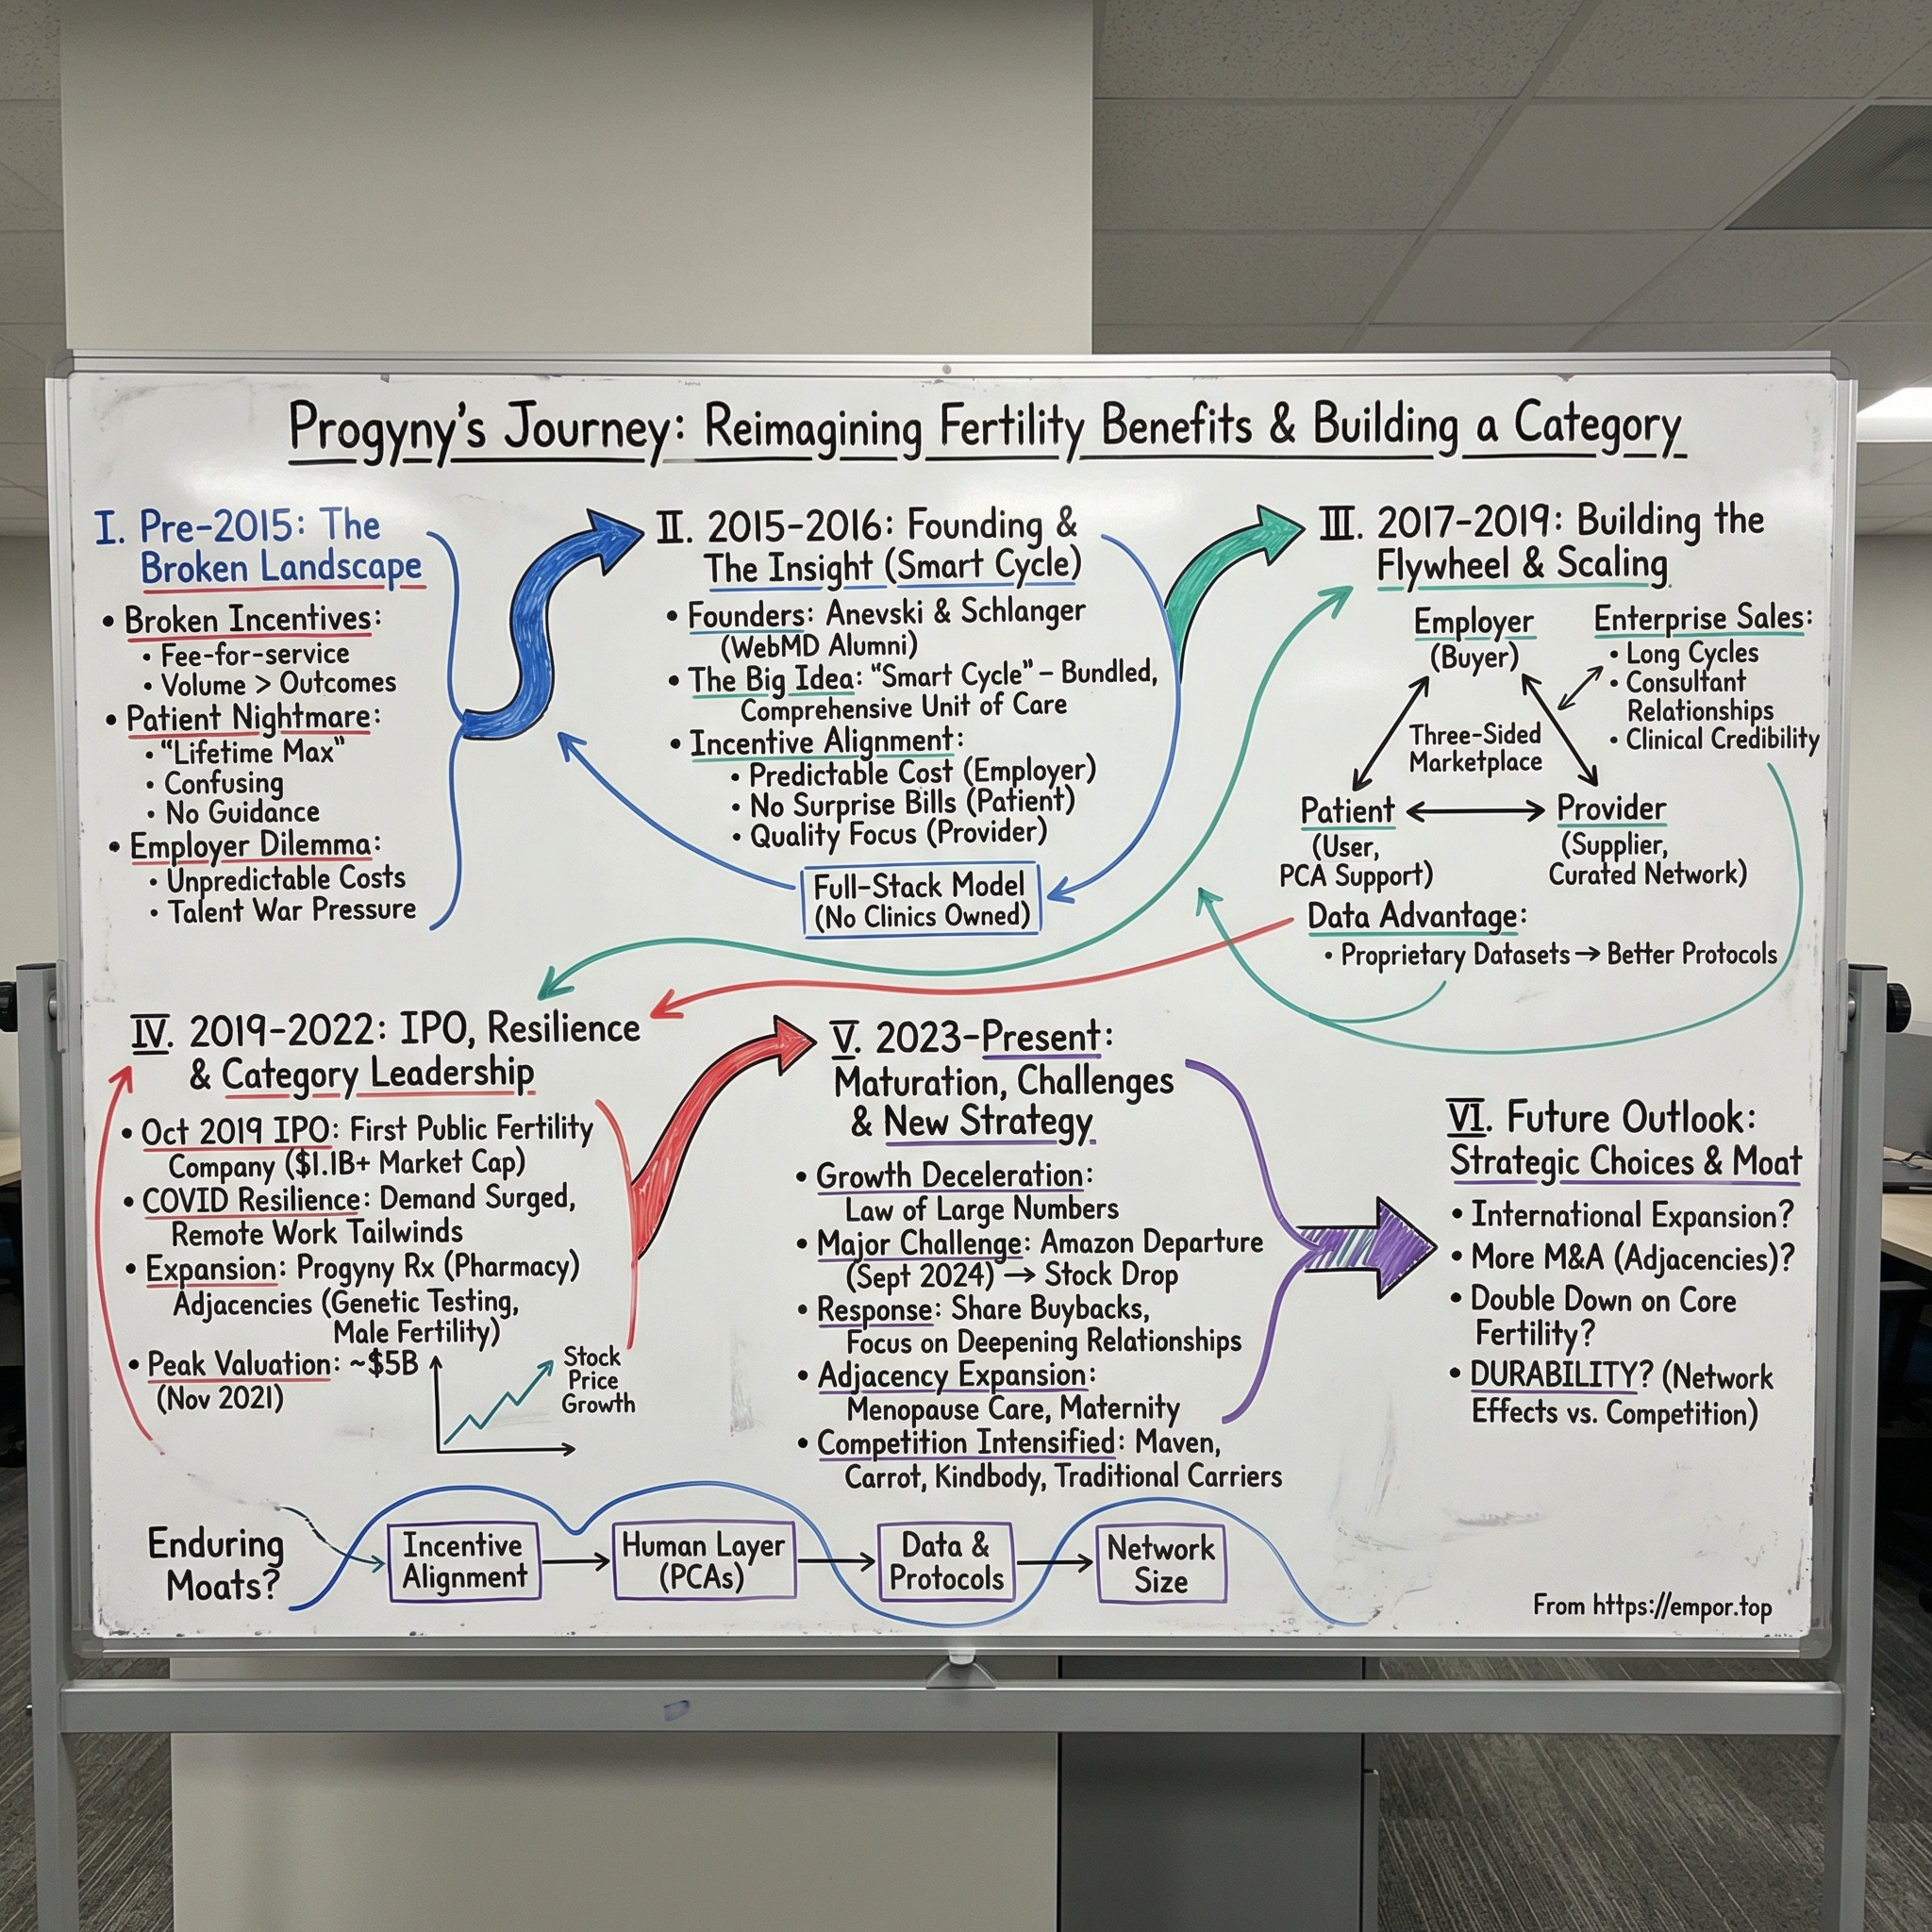 Progyny's Journey: Reimagining Fertility Benefits & Building a Category
I. Pre-2015: The
Broken Landscape
• Broken Incentives:
• Fee-for-service
• Volume > Outcomes
• Patient Nightmare:
• "Lifetime Max"
• Confusing
• No Guidance
• Employer Dilemma:
• Unpredictable Costs
• Talent War Pressure
II. 2015-2016: Founding &
The Insight (Smart Cycle)
• Founders: Anevski & Schlanger
(WebMD Alumni)
• The Big Idea: "Smart Cycle" – Bundled,
Comprehensive Unit of Care
• Incentive Alignment:
• Predictable Cost (Employer)
• No Surprise Bills (Patient)
• Quality Focus (Provider)
Full-Stack Model
(No Clinics Owned)
III. 2017-2019: Building the
Flywheel & Scaling
Employer
(Buyer)
Enterprise Sales:
• Long Cycles
• Consultant
Relationships
• Clinical Credibility
Three-Sided
Marketplace
Patient
(User,
PCA Support)
Provider
(Supplier,
Curated Network)
Data Advantage:
• Proprietary Datasets → Better Protocols
IV. 2019-2022: IPO, Resilience
& Category Leadership
• Oct 2019 IPO: First Public Fertility
Company ($1.1B+ Market Cap)
• COVID Resilience: Demand Surged,
Remote Work Tailwinds
• Expansion: Progyny Rx (Pharmacy)
Adjacencies (Genetic Testing,
Male Fertility)
• Peak Valuation: ~$5B
(Nov 2021)
Stock
Price
Growth
V. 2023-Present:
Maturation, Challenges
& New Strategy
• Growth Deceleration:
Law of Large Numbers
• Major Challenge: Amazon Departure
(Sept 2024) → Stock Drop
• Response: Share Buybacks,
Focus on Deepening Relationships
• Adjacency Expansion:
Menopause Care, Maternity
• Competition Intensified: Maven,
Carrot, Kindbody, Traditional Carriers
VI. Future Outlook:
Strategic Choices & Moat
• International Expansion?
• More M&A (Adjacencies)?
• Double Down on Core
Fertility?
• DURABILITY? (Network
Effects vs. Competition)
Enduring
Moats?
Incentive
Alignment
Human Layer
(PCAs)
Data &
Protocols
Network
Size
From https://empor.top